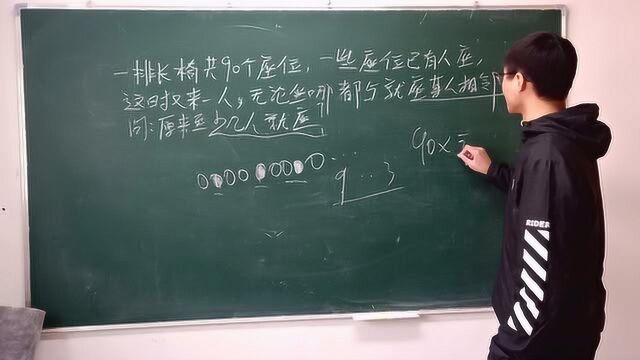 一排长椅共90个座位，一些座位已有人座，
这时又来一人，无论坐哪都与就座直人相邻
问：原来至少几人就座
0000000000
9 .. 3
90×
RIDER